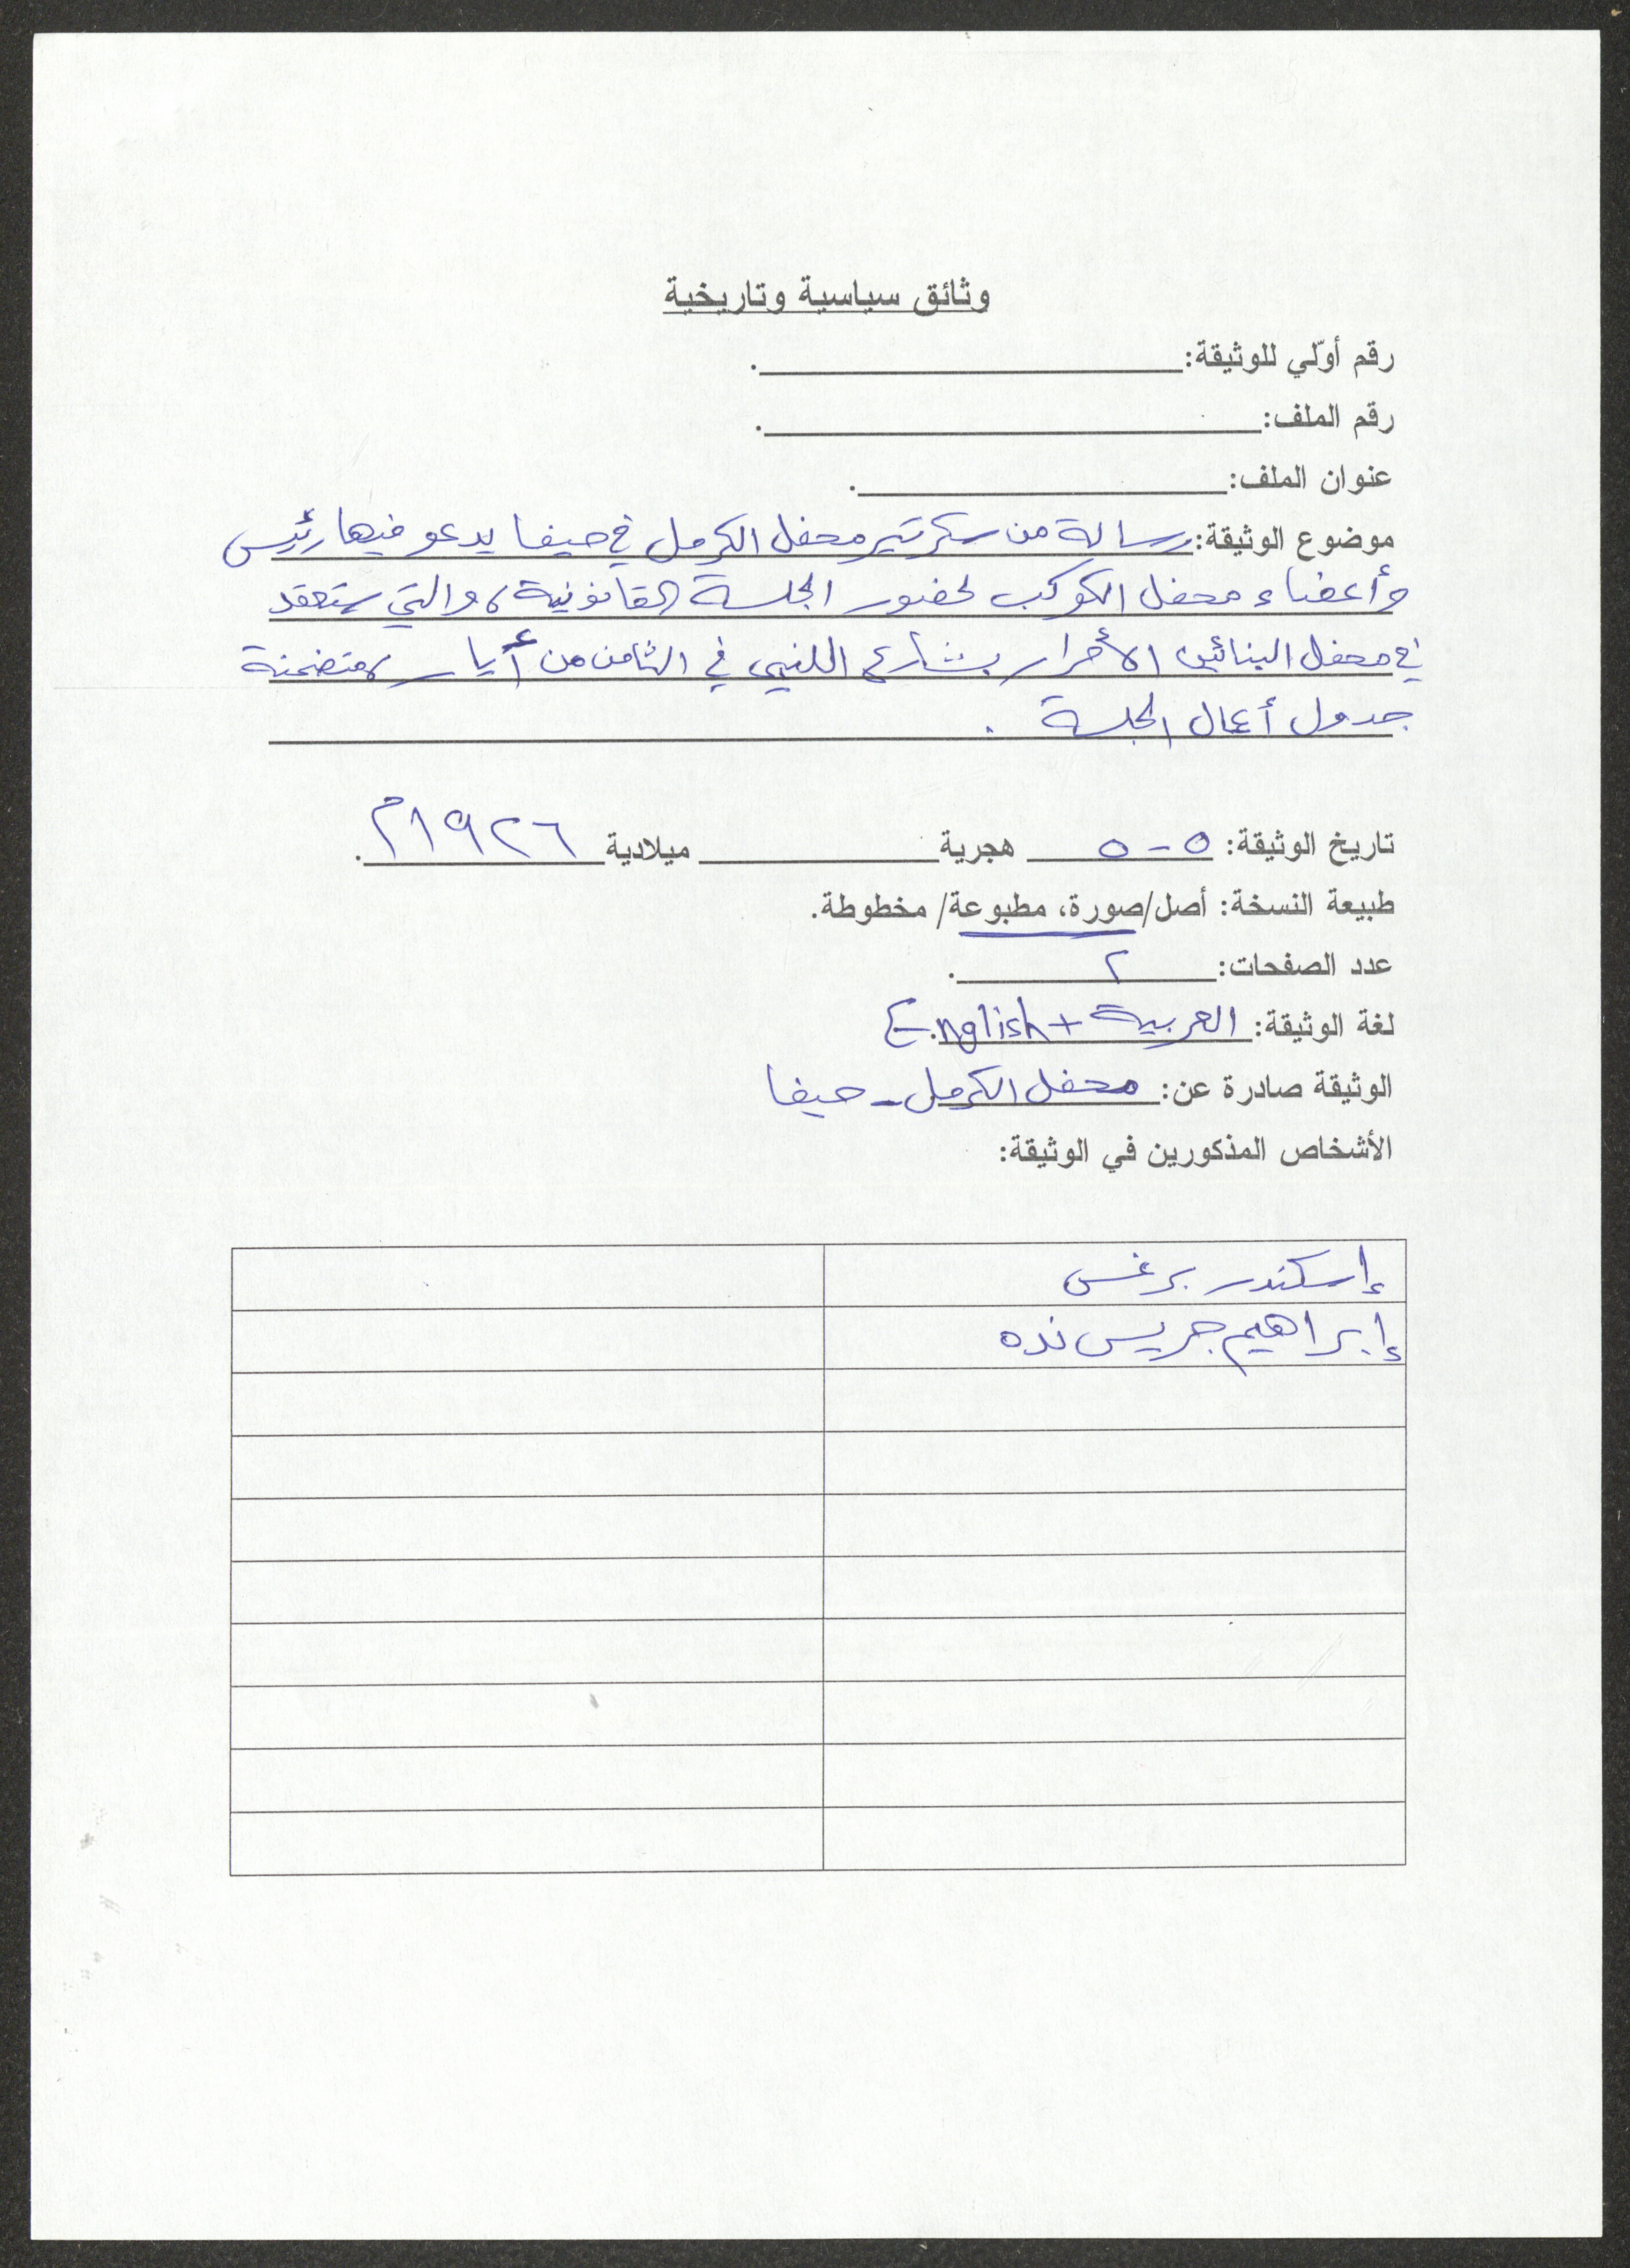 وثائق سياسية وتاريخية
رقم أوّلي للوثيقة: ____________.
رقم الملف: ____________.
عنوان الملف: ____________.
موضوع الوثيقة: رسالة من سكرتير محفل الكرمل في حيفا يدعو فيها رئيس
وأعضاء محفل الكوكب لحضور الجلسة القانونية، والتي ستعقد
في محفل البنائين الأحرار بشارع اللنبي في الثامن من أيار، متضمنة
جدول أعمال الجلسة .
تاريخ الوثيقة: ٥-٥ هجرية ____________ ميلادية ١٩٢٦م.
طبيعة النسخة: أصل/صورة، مطبوعة/ مخطوطة.
عدد الصفحات: ٢.
لغة الوثيقة: العربية + English.
الوثيقة صادرة عن: محفل الكرمل - حيفا
الأشخاص المذكورين في الوثيقة:
إسكندر برغس
إبراهيم جريس نده